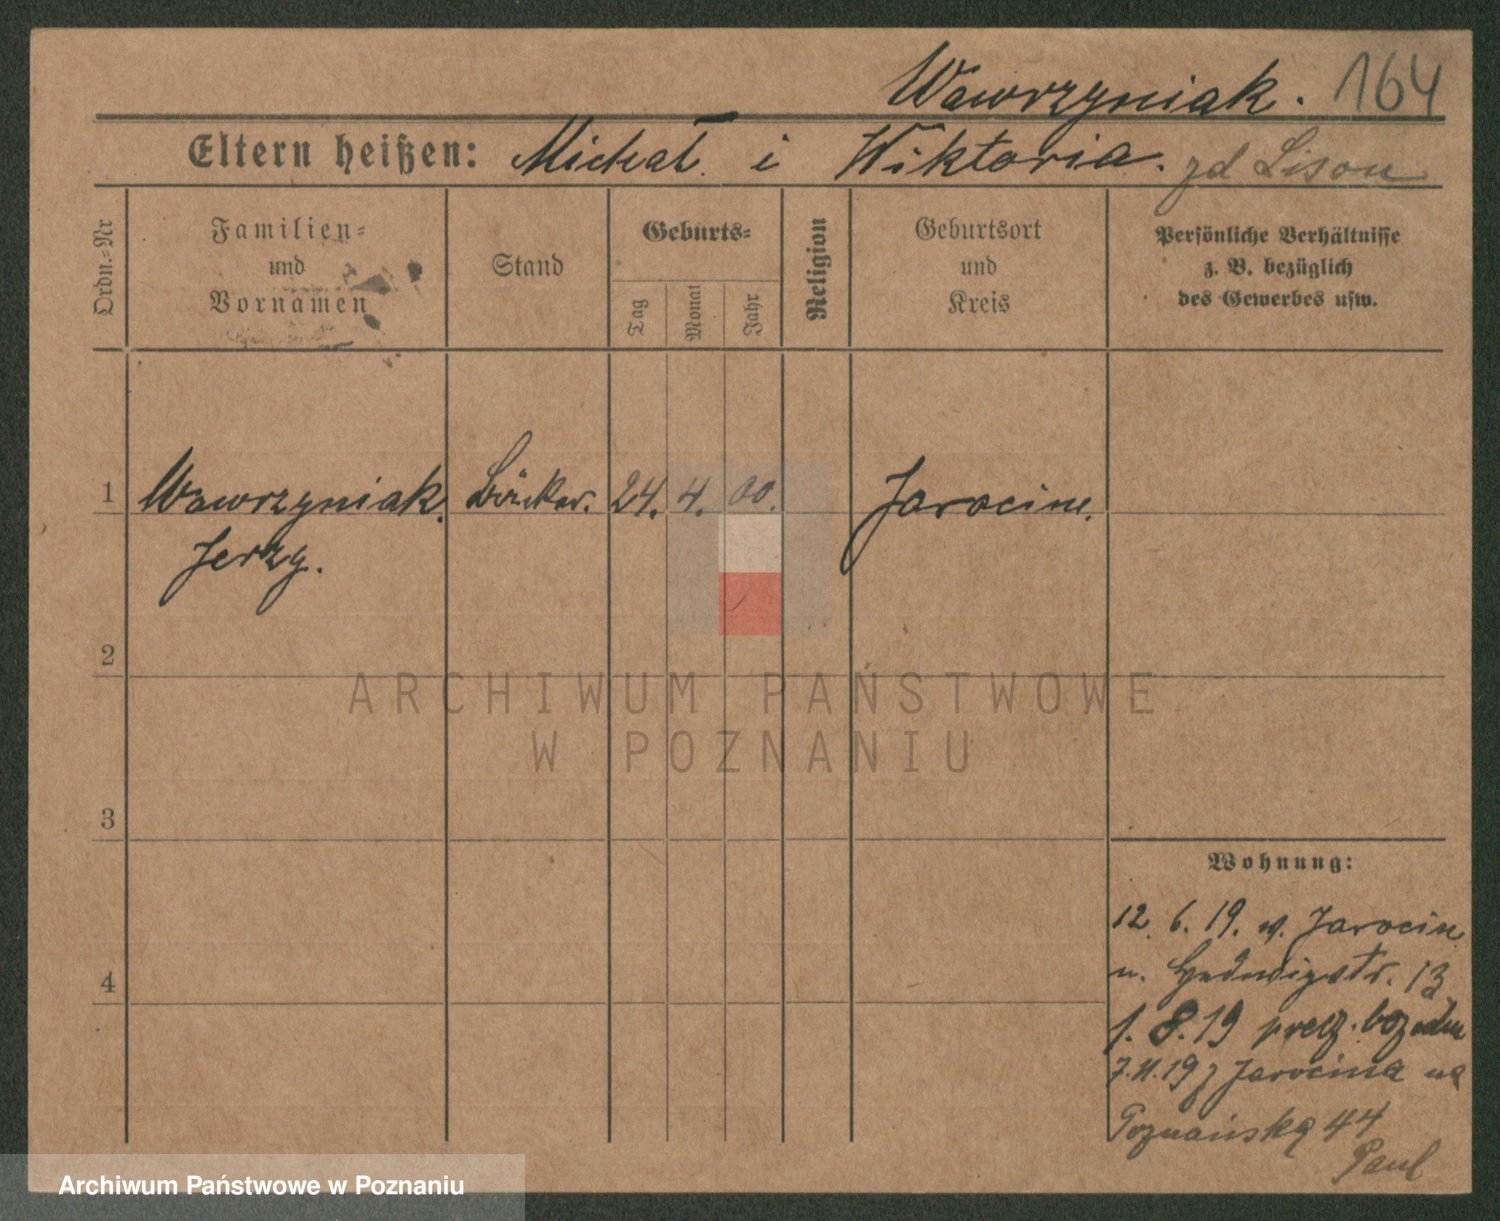 Wawrzyniak. 164
Eltern heißen: Michał i Wiktoria. zd Lison
Ordn.-Nr
Familien-
und
Vornamen
Stand
Geburts-
Tag
Monat
Jahr
Religion
Geburtsort
und
Kreis
Persönliche Verhältnisse
z. B. bezüglich
des Gewerbes usw.
1 Wawrzyniak. Bäcker. 24. 4. 00. Jarocin.
Jerzy.
2
ARCHIWUM PAŃSTWOWE
W POZNANIU
3
4
Wohnung:
12. 6. 19. w. Jarocin
u. Hedwigstr. 13
1. 8. 19
7.11.19 z Jarocina na
Poznańską 44
Paul
Archiwum Państwowe w Poznaniu